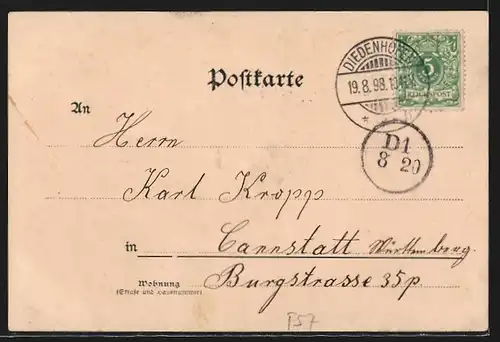 DIEDENHOFEN
19.8.98.10
*
5
REICHSPOST
Postkarte
An
D1
8 20
Herrn
Karl Kropp
in Cannstatt Württemberg.
Wohnung
(Straße und Hausnummer)
Burgstrasse 35p
P57